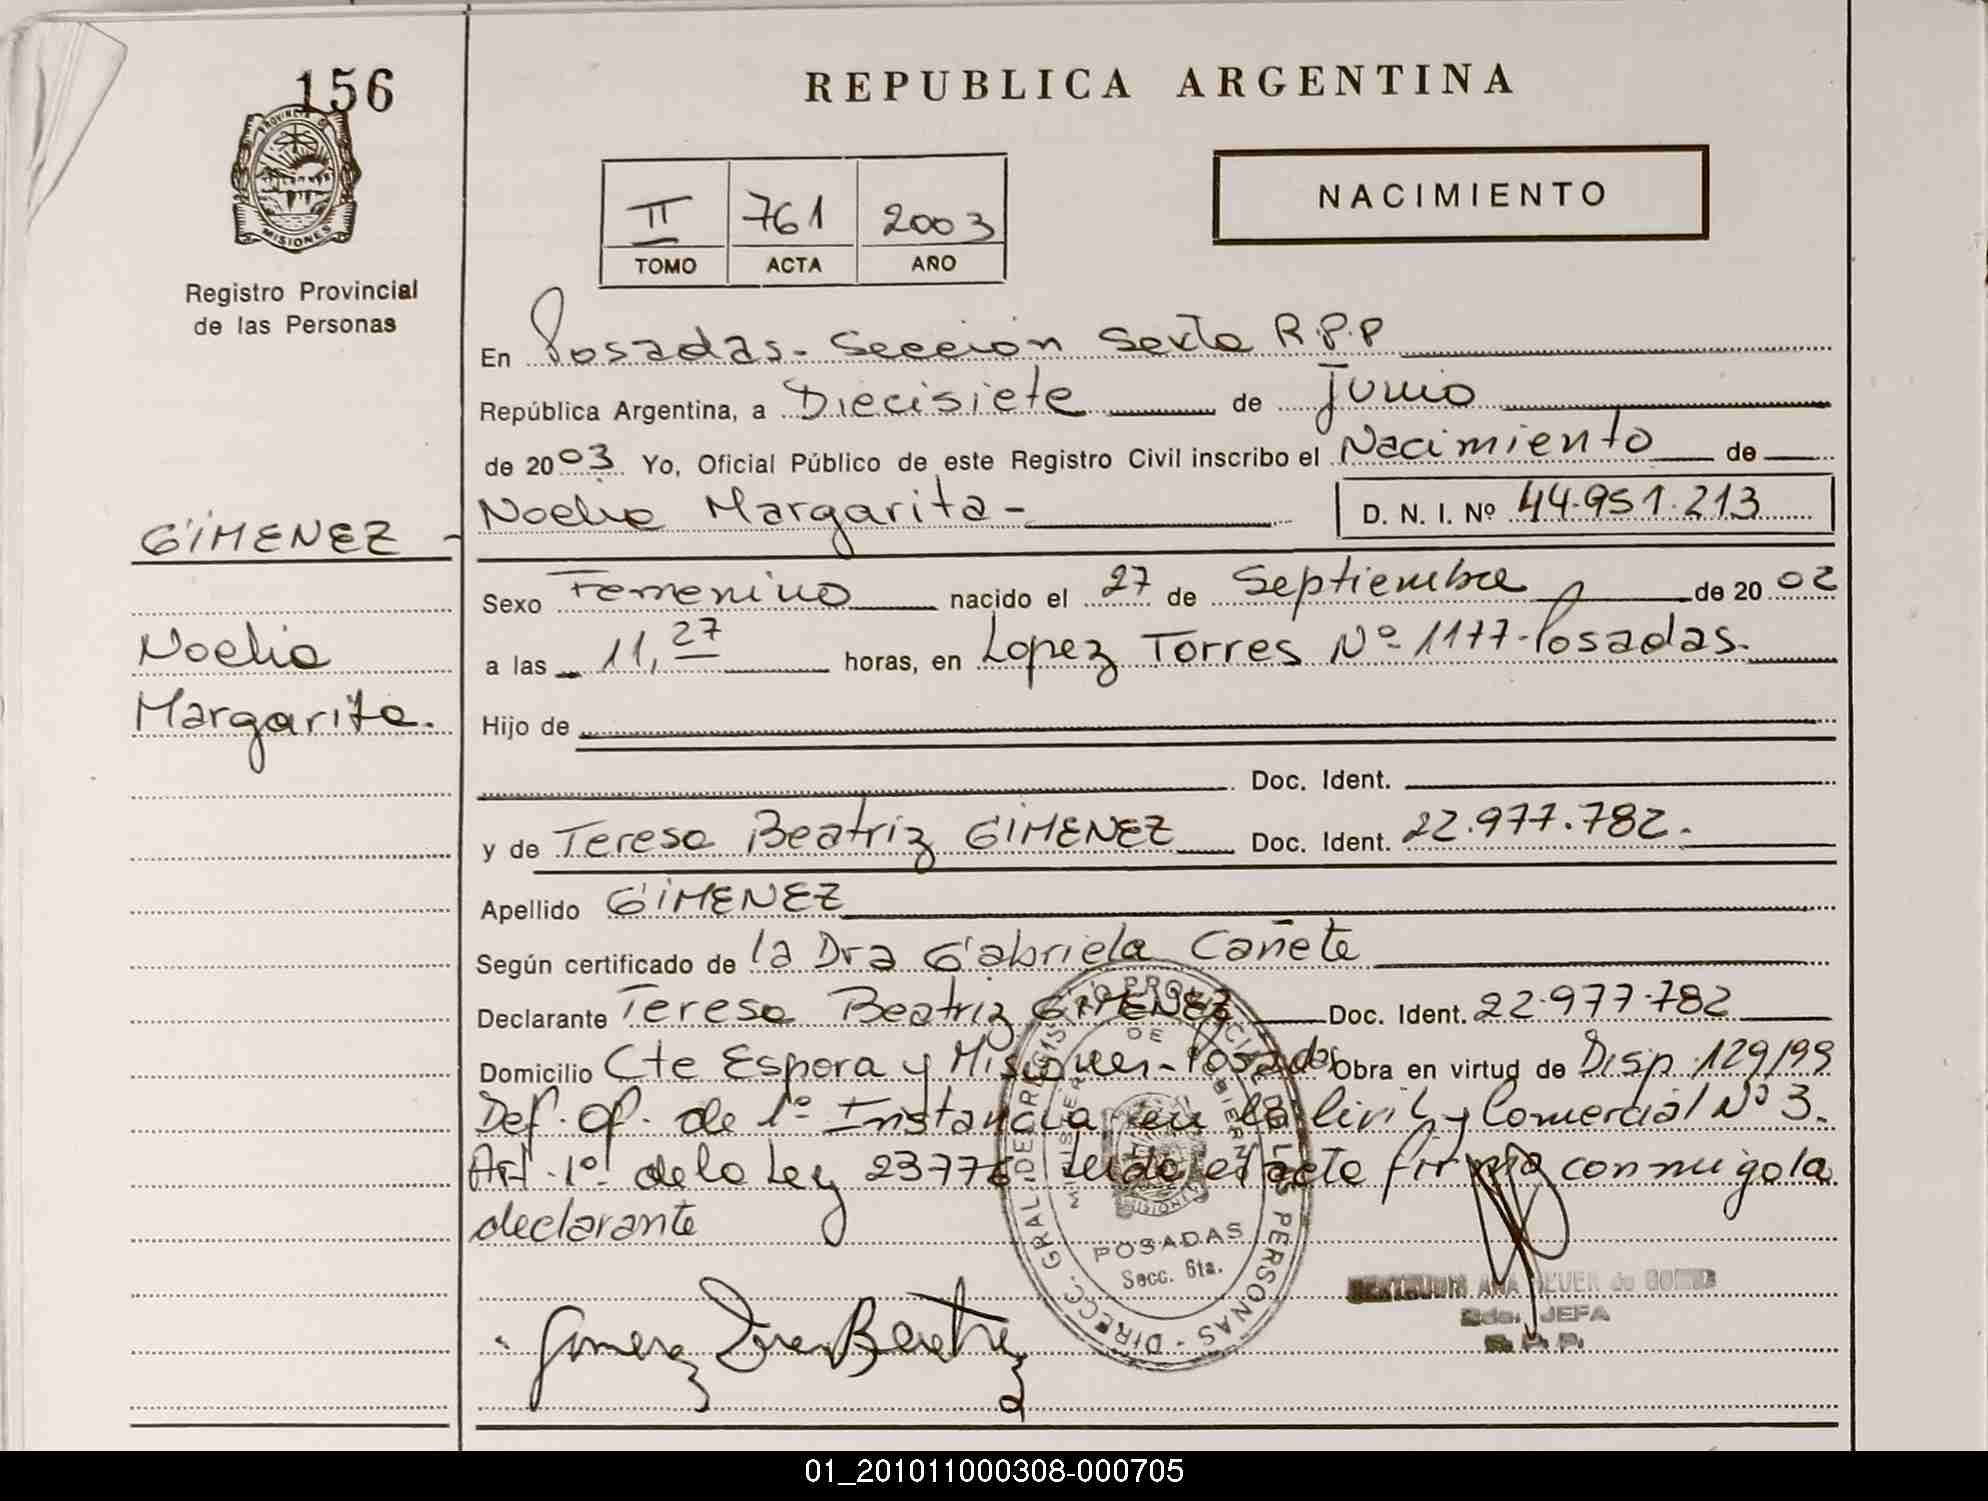 156
PROVINCIA DE
MISIONES
Registro Provincial
de las Personas
GIMENEZ -
Noelia
Margarita.
REPUBLICA ARGENTINA
II 761 2003
TOMO ACTA AÑO
NACIMIENTO
En Posadas - Sección Sexta R.P.P
República Argentina, a Diecisiete de Junio
de 2003 Yo, Oficial Público de este Registro Civil inscribo el Nacimiento de
Noelia Margarita - D. N. I. Nº 44.951.213
Sexo Femenino nacido el 27 de Septiembre de 2002
a las 11,27 horas, en Lopez Torres Nº 1177 - Posadas.
Hijo de
Doc. Ident.
y de Teresa Beatriz GIMENEZ Doc. Ident. 22.977.782.
Apellido GIMENEZ
Según certificado de la Dra Gabriela Cañete
Declarante Teresa Beatriz GIMENEZ Doc. Ident. 22.977.782
Domicilio Cte Espora y Misiones - Posadas Obra en virtud de Disp. 129/99
Def. Of. de 1º Instancia en lo Civil y Comercial Nº 3.
Art. 1º de la Ley 23776 Leído el acta firma conmigo la
declarante
DIRECC. GRAL. DE REGISTRO PROVINCIAL DE LAS PERSONAS
POSADAS
Secc. 6ta.
Gimenez Beatriz
ANA de
JEFA
R. P. P.
01_201011000308-000705